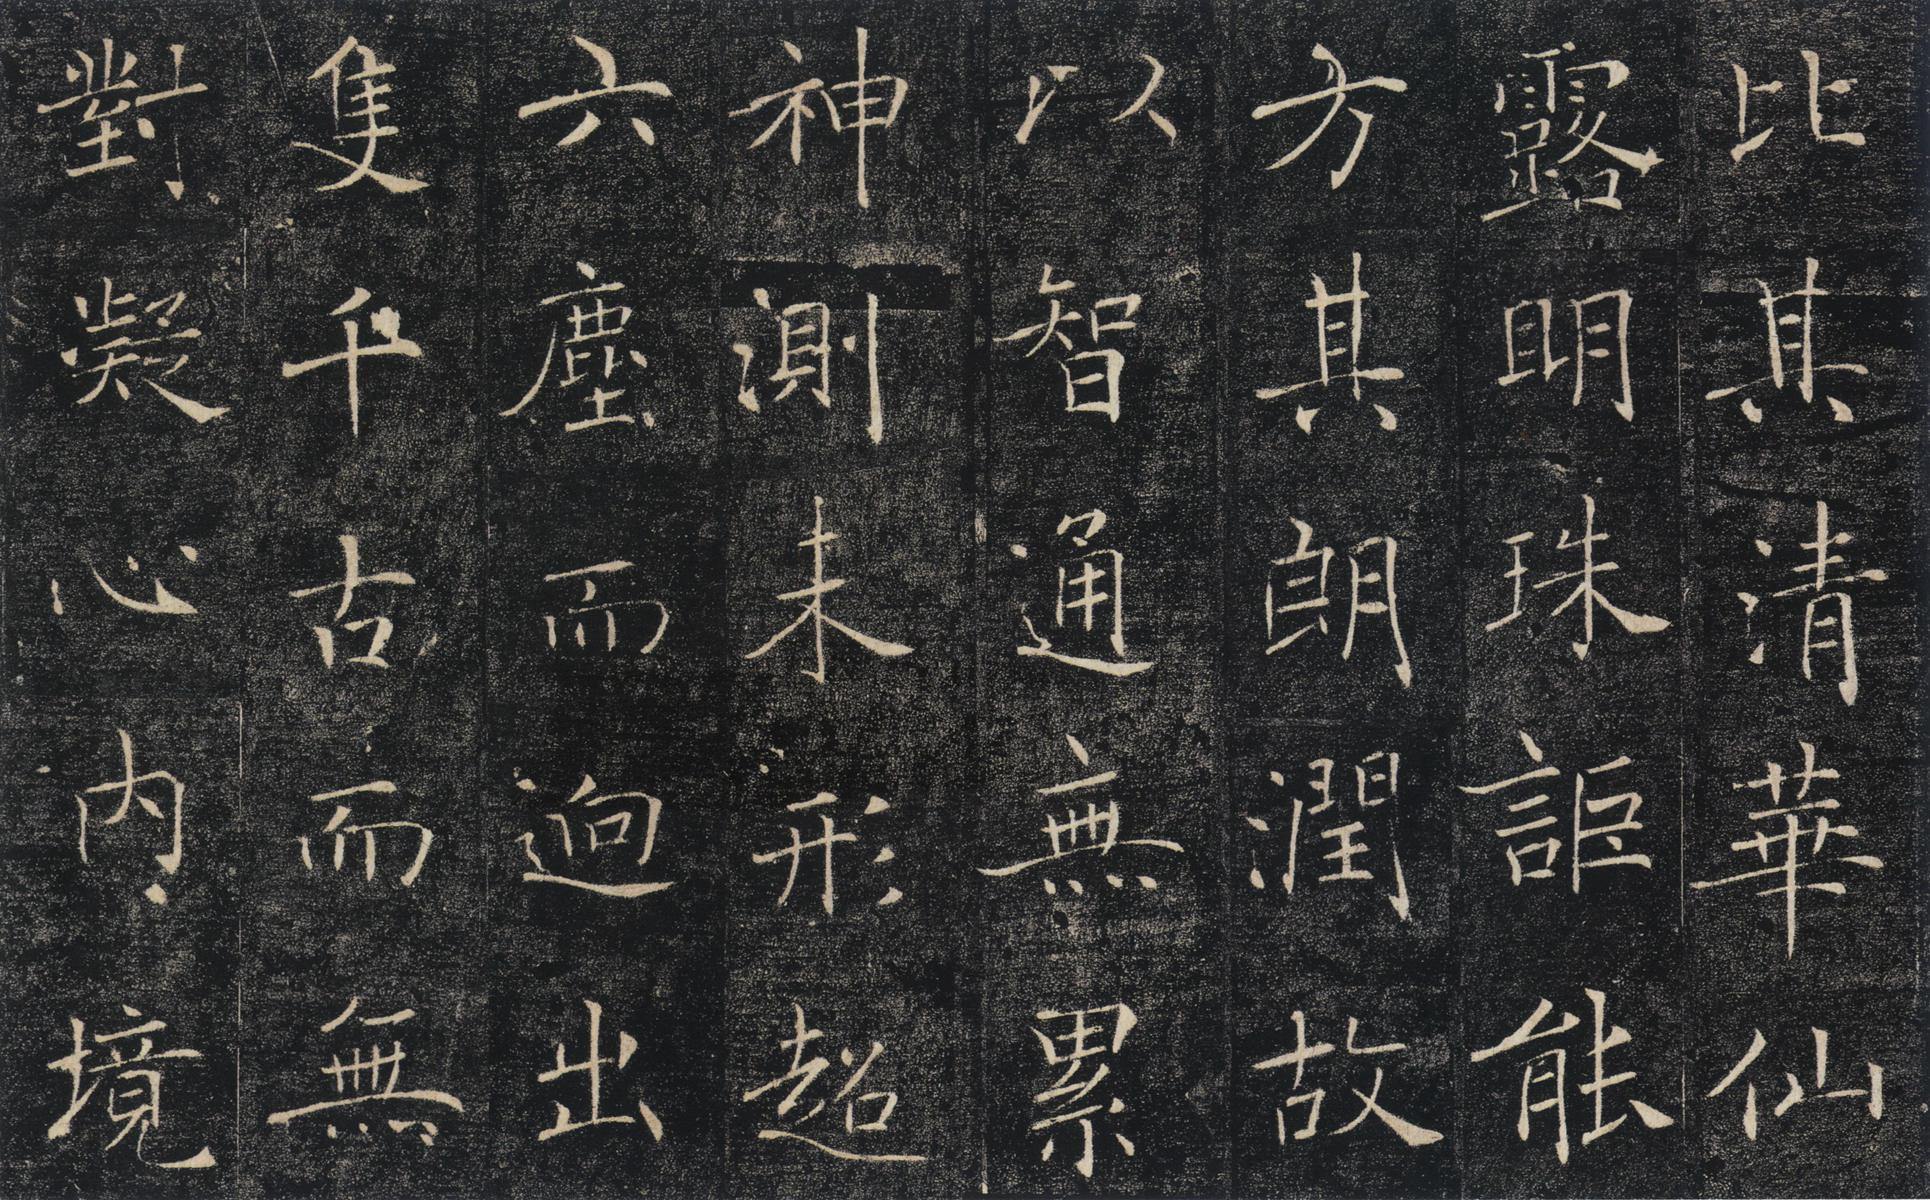 比其清華仙
露明珠詎能
方其朗潤故
以智通無累
神測未形超
六塵而逈出
隻千古而無
對凝心內境